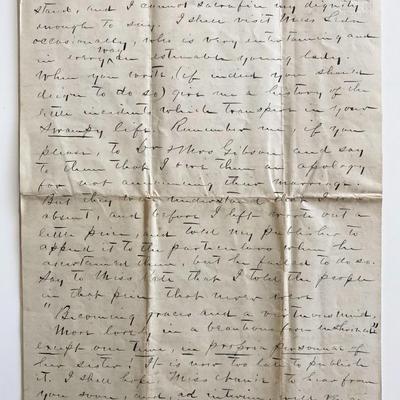 stand, and I cannot sacrifice my dignity
enough to say. I shall visit Miss
occasionally, who is very entertaining and
in every way an estimable young lady.
When you write, (if indeed you should
deign to do so) give me a history of the
little incidents which transpire in your
Swampy life. Remember me, if you
please, to Dr & Mrs Gibson and say
to them that I owe them an apology
for not announcing their marriage.
But they will understand that I was
absent, and before I left wrote out a
little piece, and told my publisher to
append it to the particulars when he
ascertained them, but he failed to do so.
Say to Miss Kate that I told the people
in that piece that never were
"Becoming graces and a virtuous mind,
More lovely in a beauteous form enshrined"
except one time, in propria personae of
her sister! It is now too late to publish
it. I shall hope Miss to hear from
you soon, and, ad interim, will